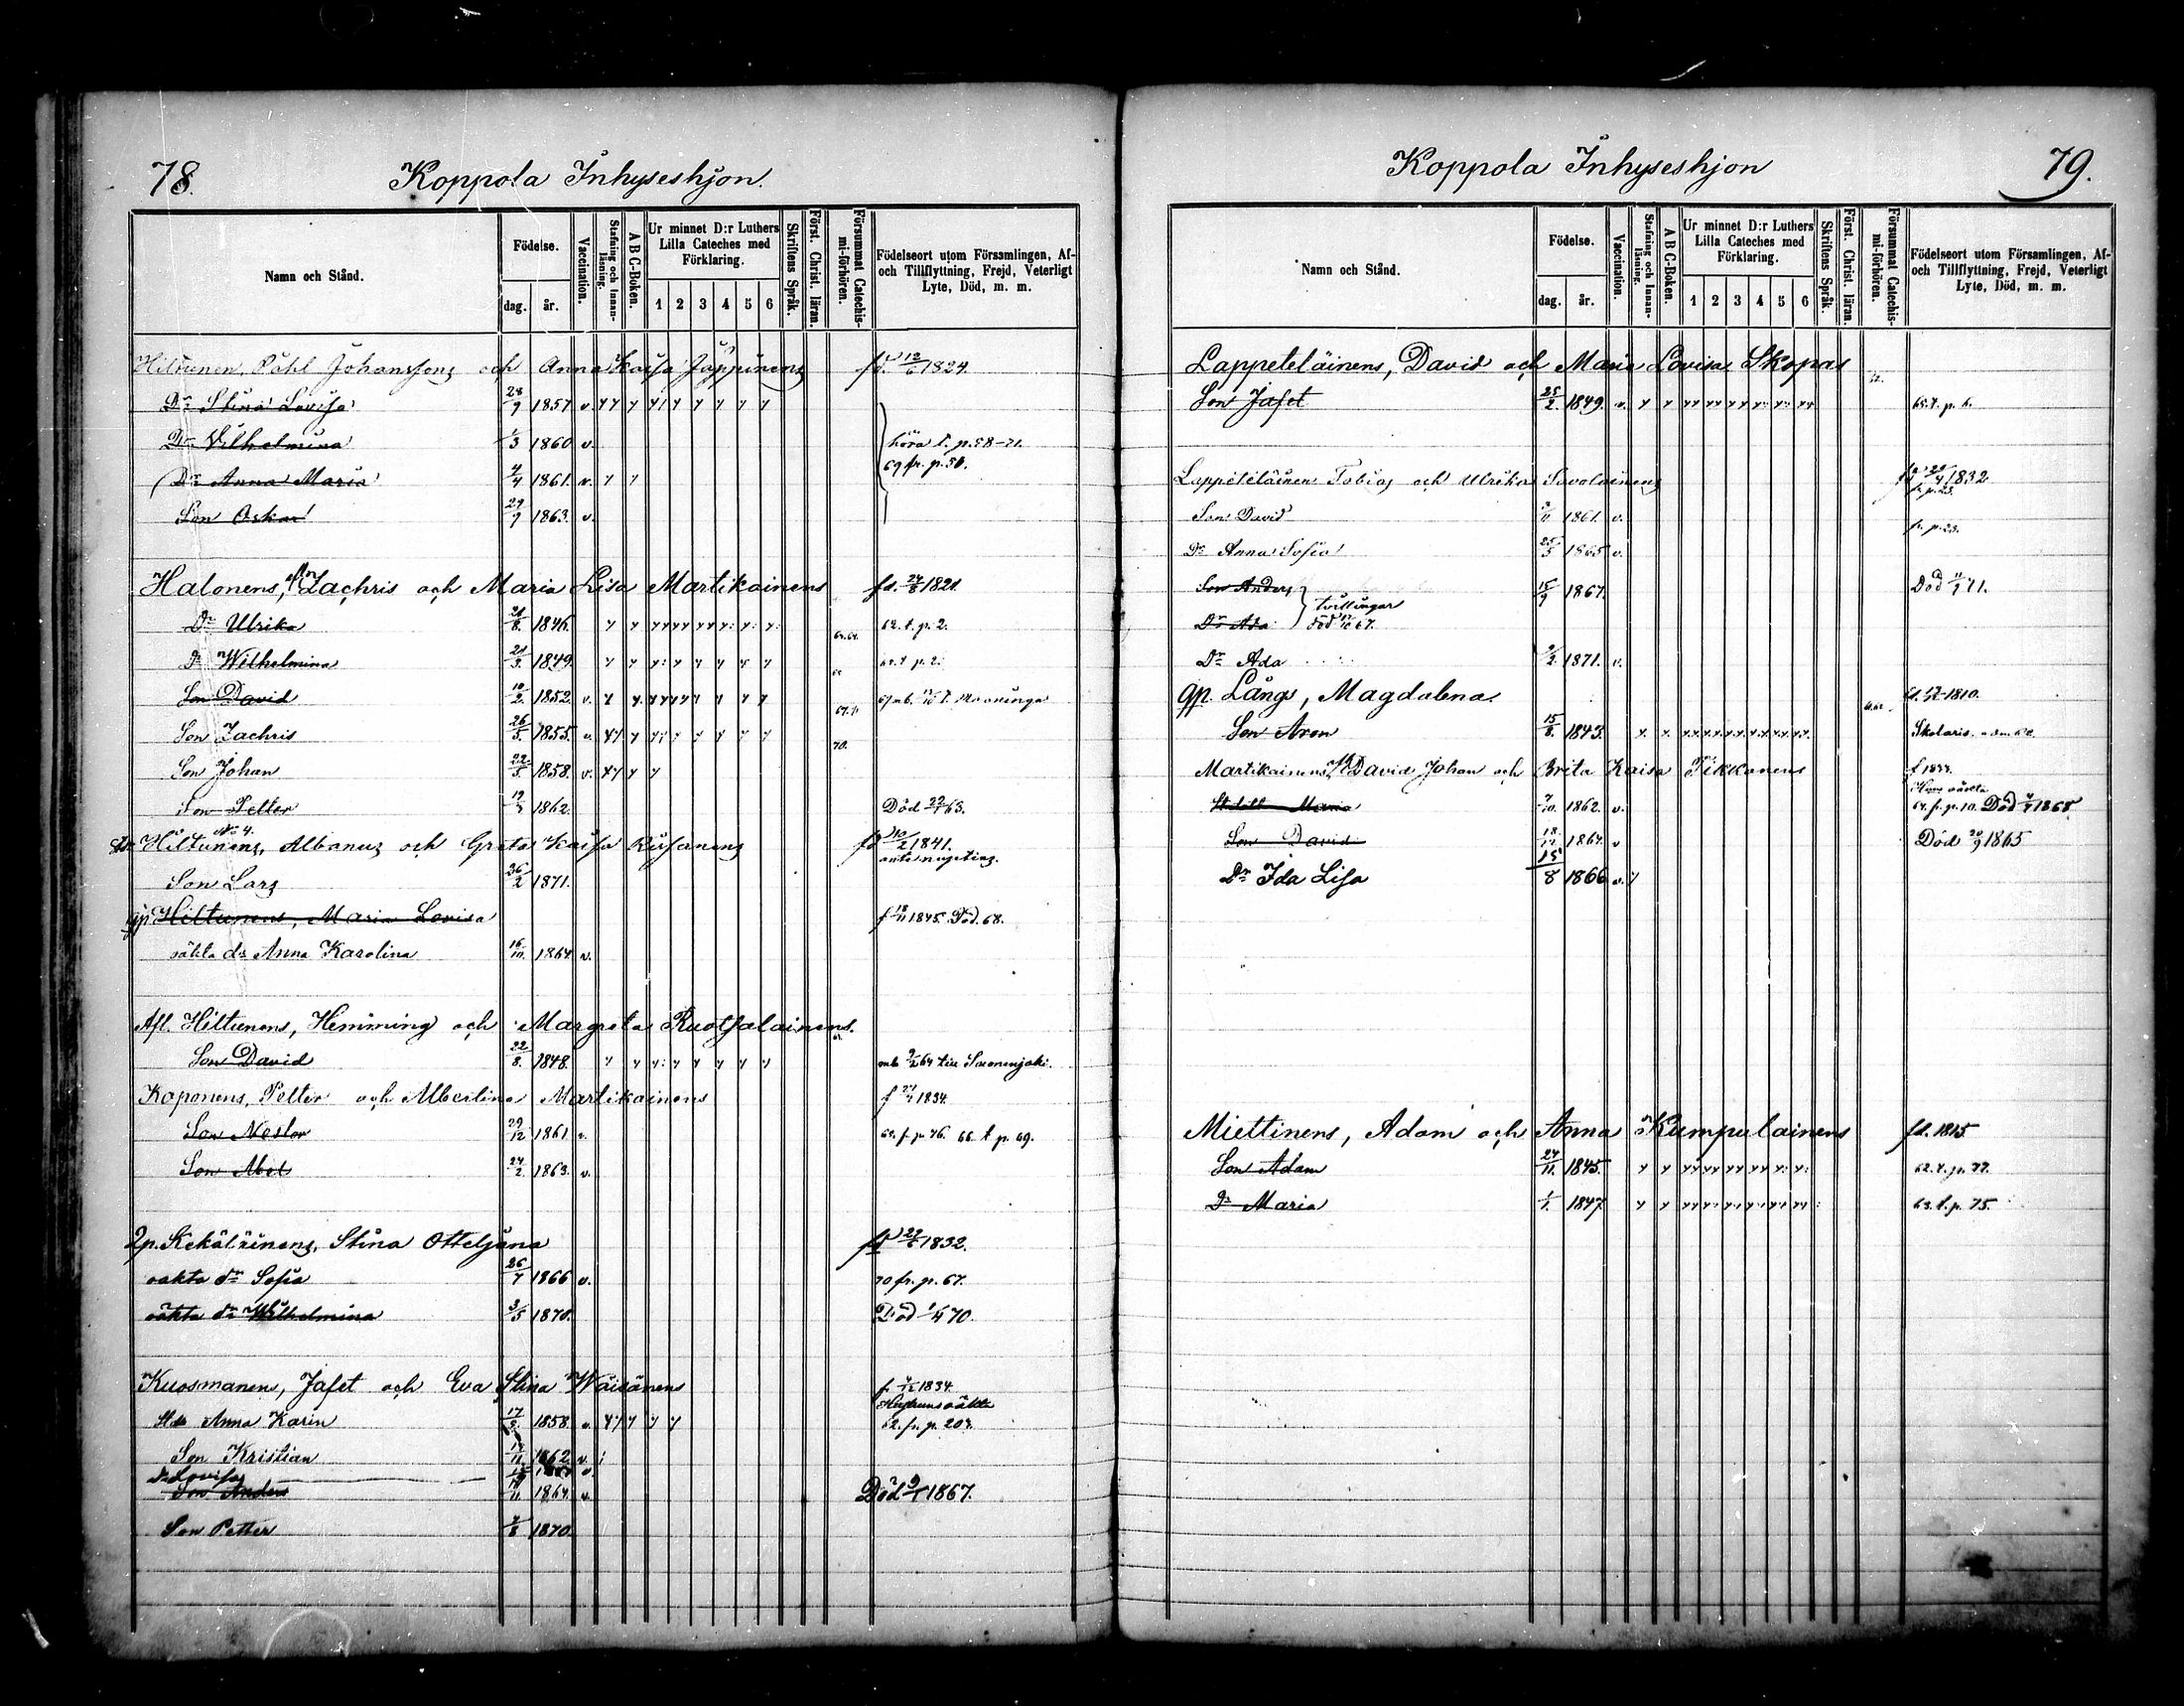 78. Koppola Inhyseshjon.
Namn och Stånd. Födelse. dag. år. Vaccination. Stafning och Innan-läsning. A B C-Boken. Ur minnet D:r Luthers Lilla Cateches med Förklaring. 1 2 3 4 5 6 Skriftens Språk. Först. Christ. läran. Försummat Catechis-mi-förhören. Födelseort utom Församlingen, Af- och Tillflyttning, Frejd, Veterligt Lyte, Död, m. m.
Hiltunen, Påhl Johanssons och Anna Kaisa Jäppinens fd. 12/6 1824.
Dr Stina Lovisa 28/9 1857 v.
Dr Vilhelmina 1/3 1860 v. höra t. p. 58-71.
69 fr. p. 50.
Dr Anna Maria 4/4 1861. v.
Son Oskar 29/9 1863. v.
Halonens, Zachris och Maria Lisa Martikainens fd. 24/8 1821.
Dr Ulrika 21/8. 1846. 62. t. p. 2.
Dr Wilhelmina 21/3. 1849. p. 2.
Son David 10/2. 1852. v. Maaninga
Son Zachris 26/5. 1855. v. 70.
Son Johan 22/5 1858. v.
Son Petter 1862. Död 63.
No 4.
Hiltunens, Albanus och Greta Kaisa fd 10/2 1841.
Son Lars 26/2 1871.
gp. Hiltunens, Maria Lovisa f 18/11 1845. Död. 68.
oäkta dr Anna Karolina 16/10. 1864 v.
Afl. Hiltunens, Hemming och Margreta Ruotsalainens.
Son David 22/8. 1848. 64 till
Koponens, Petter och Albertina Martikainens f 1834.
Son Nestor 29/12 1861 v. 63. f. p. 76. 66. t. p. 69.
Son Abel 24/2. 1863. v.
Qp. Kekäläinens, Stina Otteljana fd 1832.
oäkta dr Sofia 26/7 1866 v. 70 fr. p. 67.
oäkta dr Wilhelmina 3/5 1870. Död 70.
Kuosmanens, Jafet och Eva Stina Wäisänens f. 1834.
Anna Karin 17/5. 1858. v. 62. fr. p. 207.
Son Kristian 1862 v.
dr Lovisa
Son Anders 1864. v. Död 1867.
Son Petter 1870.
Koppola Inhyseshjon 79.
Namn och Stånd. Födelse. dag. år. Vaccination. Stafning och Innan-läsning. A B C-Boken. Ur minnet D:r Luthers Lilla Cateches med Förklaring. 1 2 3 4 5 6 Skriftens Språk. Först. Christ. läran. Försummat Catechis-mi-förhören. Födelseort utom Församlingen, Af- och Tillflyttning, Frejd, Veterligt Lyte, Död, m. m.
Lappeteläinens, David och Maria Lovisa Skopas
Son Jafet 25/2. 1849. v. 65. t. p. 6.
Lappeteläinen Tobias och Ulrika Savolainens 1832
fr. p. 23.
Son David 1861. v. fr. p. 23.
Dr Anna Sofia 25/5 1865 v.
Son Anders 15/9 1867. Död 71.
tvillingar
Dr Ada död 67.
Dr Ada 1871. v.
gp. Långs, Magdalena. fd. 1810.
Son Aron 15/8. 1843.
Martikainens, David Johan och Brita Kaisa Pikkanens f 1833.
Maria 7/10. 1862. v. 64. f. p. 10. Död 1868
Son David 18/12. 1864. v Död 20/9 1865
Dr Ida Lisa 15/8 1866 v.
Miettinens, Adam och Anna Kumpulainens fd. 1815
Son Adam 24/11. 1845. 62. t. p. 77.
Dr Maria 1/1. 1847 63. t. p. 75.